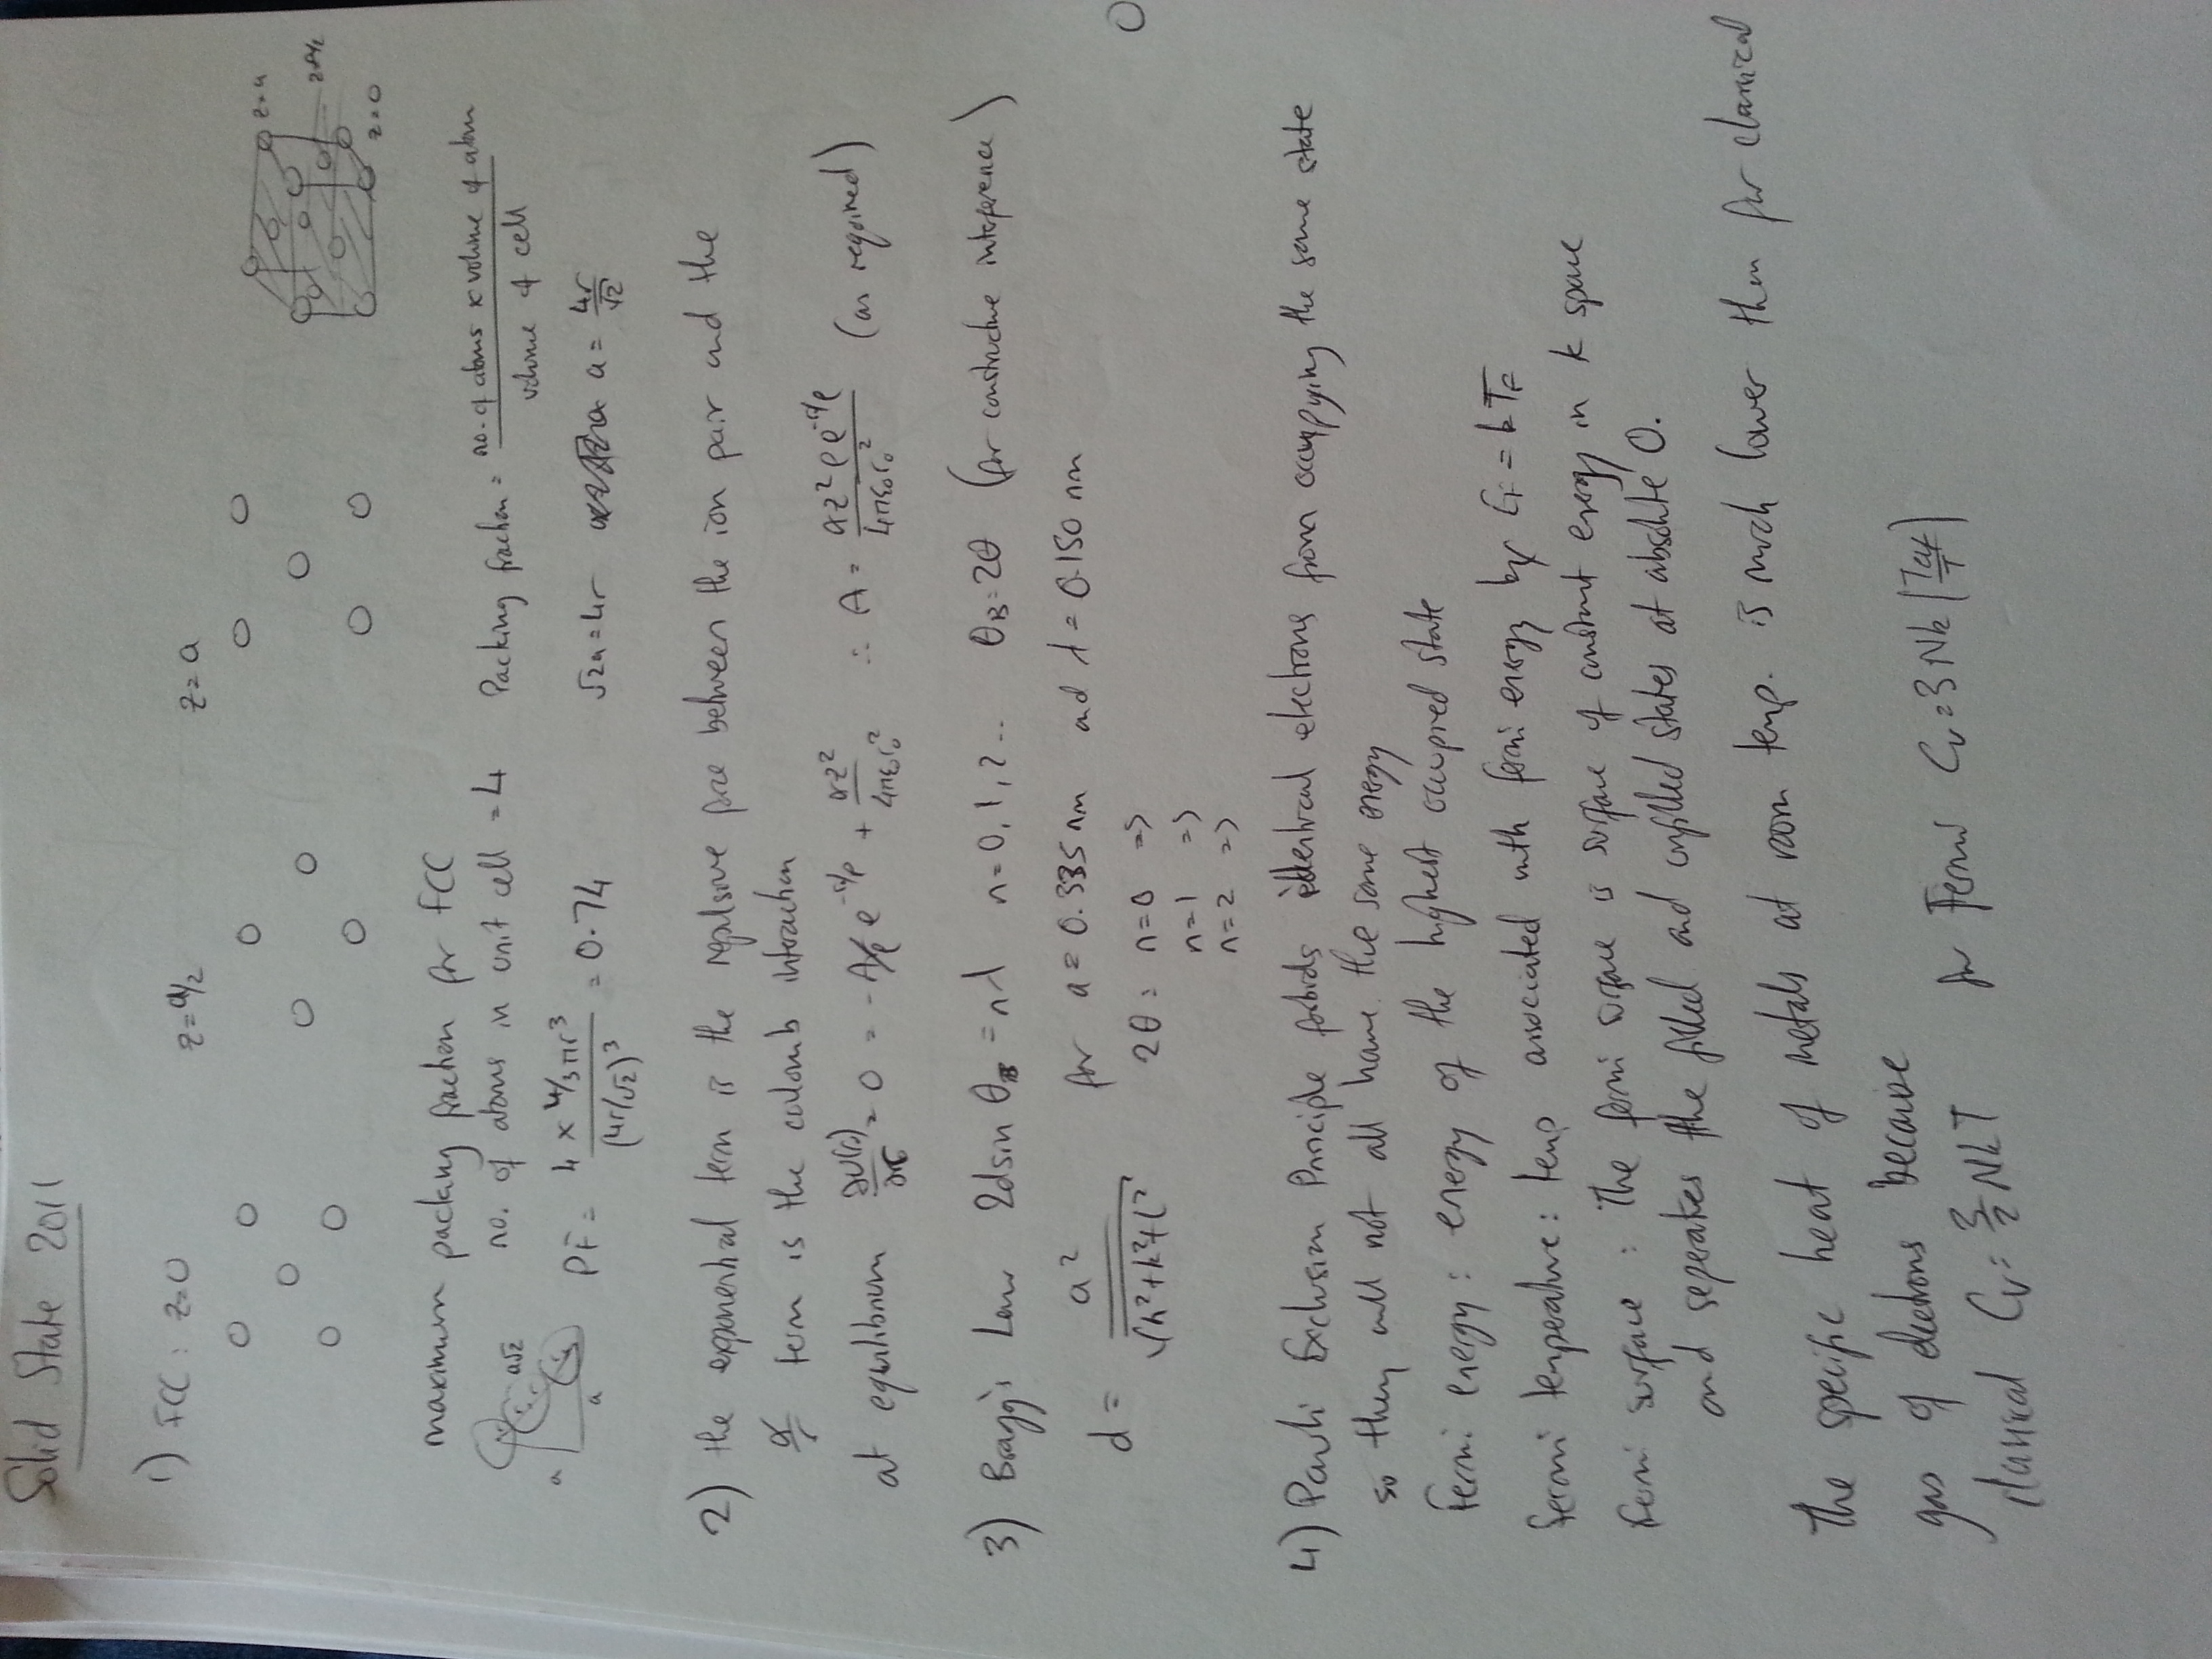 Solid State 2011
1) FCC: z=0 z=a/2 z=a
z=a
z=a/2
z=0
maximum packing fraction for FCC
no. of atoms in unit cell = 4 Packing fraction = no. of atoms x volume of atom / volume of cell
a√2
a
a
PF = 4 x 4/3πr³ / (4r/√2)³ = 0.74 √2a=4r a = 4r/√2
2) the exponential term is the repulsive force between the ion pair and the
α/r term is the coulomb interaction
at equilibrium ∂U(r₀)/∂r₀ = 0 = -A/ρ e^(-r₀/ρ) + αz²/4πε₀r₀² ∴ A = αz²ρe^(-r₀/ρ)/4πε₀r₀² (as required)
3) Bragg's Law 2dsin θB = nλ n=0,1,2.. θB=2θ (for constructive inteference)
d = a²/√(h²+k²+l²) for a = 0.335 nm and λ = 0.150 nm
2θ: n=0 =>
n=1 =>
n=2 =>
4) Pauli Exclusion Principle forbids identical electrons from occupying the same state
so they will not all have the same energy
Fermi energy: energy of the highest occupied state
Fermi temperature: temp associated with fermi energy by EF = kTF
Fermi surface: The fermi surface is surface of constant energy in k space
and seperates the filled and unfilled states at absolute 0.
The specific heat of metals at room temp. is much lower than for classical
gas of electrons because
classical Cv = 3/2 NkT for Fermi Cv = 3Nk